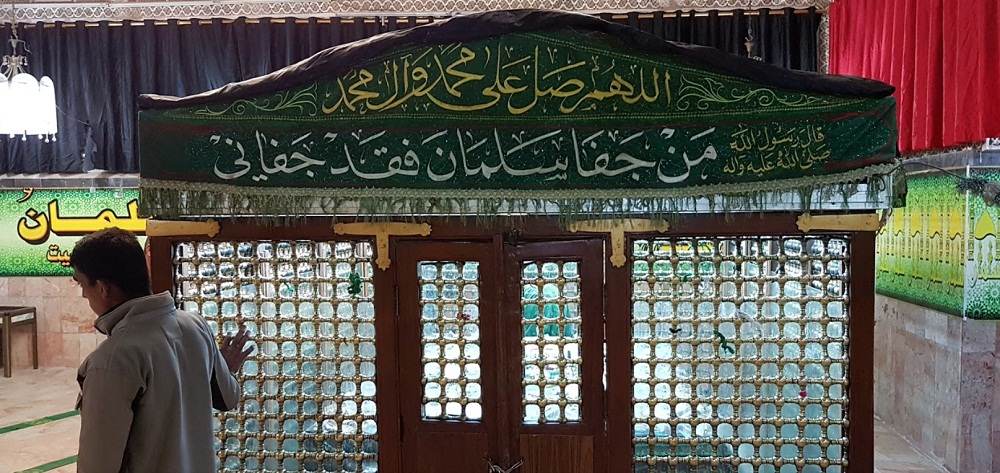 اللهم صل على محمد وال محمد
قال رسول الله
صلى الله عليه وآله
من جفا سلمان فقد جفاني
سلمان